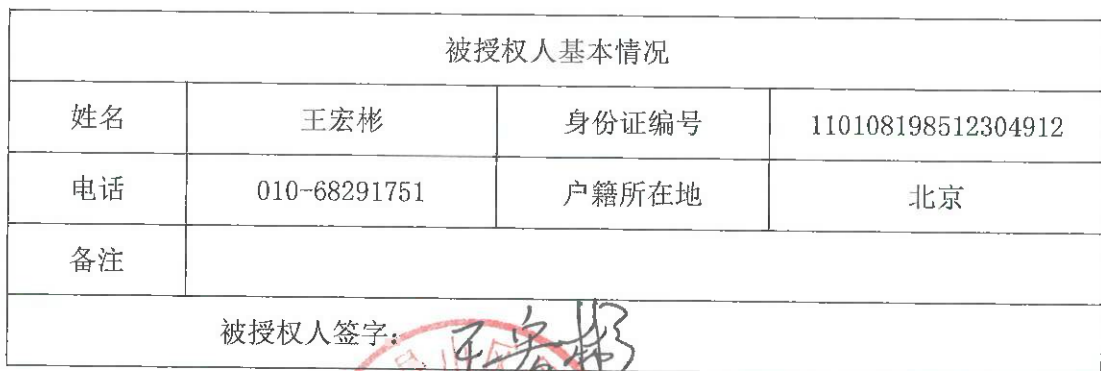 被授权人基本情况
姓名 王宏彬 身份证编号 110108198512304912
电话 010-68291751 户籍所在地 北京
备注
被授权人签字: 王宏彬